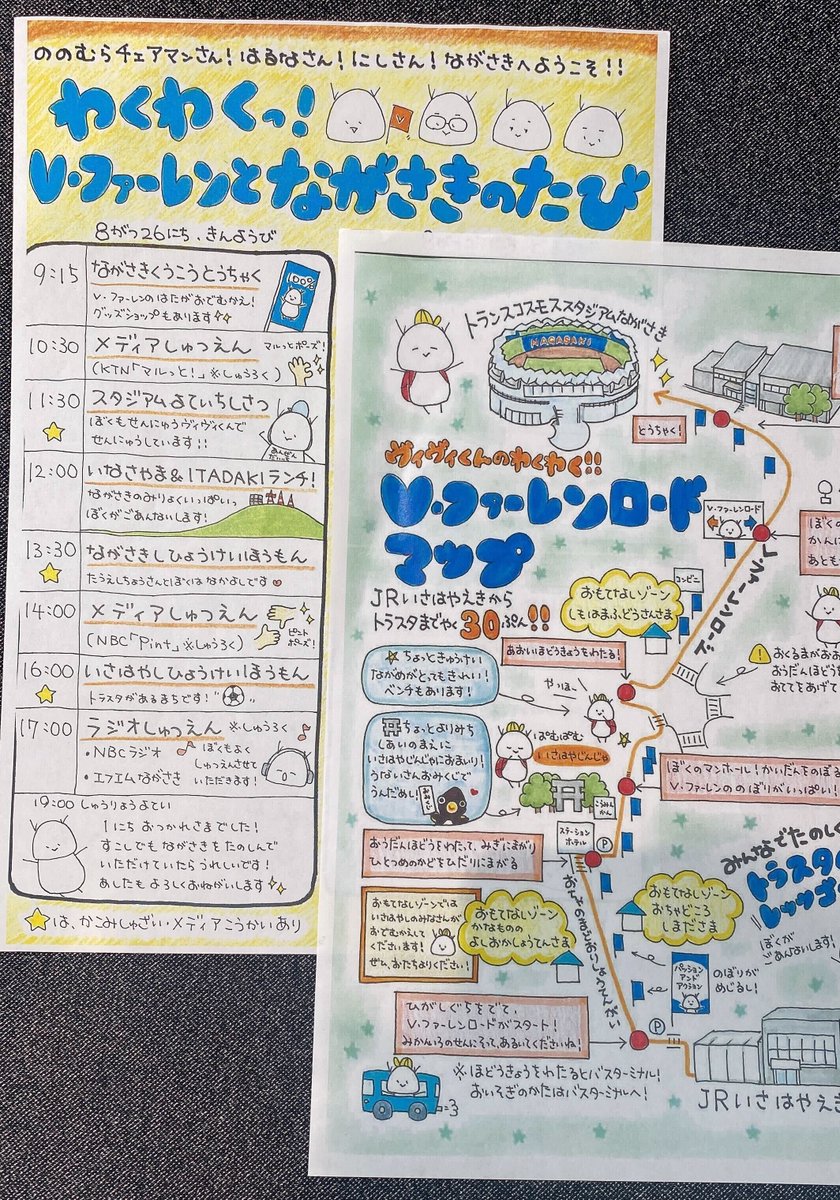 ののむらチェアマンさん！はるなさん！にしさん！ながさきへようこそ！！
わくわくっ！
V・ファーレンとながさきのたび
8がつ26にち、きんようび
9:15 ながさきくうこうとうちゃく
V・ファーレンのはたがおでむかえ！
グッズショップもあります
100%
10:30 メディアしゅつえん
(KTN「マルっと！」※しゅうろく)
マルっとポーズ！
11:30 スタジアムよていちしさつ
ぼくもせんにゅうヴィヴィくんで
せんにゅうしています！！
あんぜん
だいいち
12:00 いなさやま&ITADAKIランチ！
ながさきのみりょくいっぱいっ
ぼくがごあんないします！
13:30 ながさきしひょうけいほうもん
たうえしちょうさんとぼくはなかよしです
14:00 メディアしゅつえん
(NBC「Pint」※しゅうろく)
ピント
ポーズ！
16:00 いさはやしひょうけいほうもん
トラスタがあるまちです！
17:00 ラジオしゅつえん ※しゅうろく
・NBCラジオ
・エフエムながさき
ぼくもよく
しゅつえんさせて
いただきます！
19:00 しゅうりょうよてい
1にちおつかれさまでした！
すこしでもながさきをたのしんで
いただけていたらうれしいです！
あしたもよろしくおねがいします
は、かこみしゅざい・メディアこうかいあり
トランスコスモススタジアムながさき
NAGASAKI
とうちゃく！
ヴィヴィくんのわくわく！！
V・ファーレンロード
マップ
JRいさはやえきから
トラスタまでやく30ぷん！！
V・ファーレンロード
V・ファーレンロード
ぼくの
かんに
あとも
コンビニ
おもてなしゾーン
しもはまふどうさんさま
あおいほどうきょうをわたる！
おくるまがおお
おうだんほどう
おててをあげて
ちょっときゅうけい
ながめがとてもきれい！
ベンチもあります！
やっほ〜
ちょっとよりみち
しあいのまえに
いさはやじんじゃにおまいり！
うないさんおみくじで
うんだめし！
ぱむぱむ
いさはやじんじゃ
こうみんかん
ぼくのマンホール！かいだんをのぼる
V・ファーレンののぼりがいっぱい！
ステーション
ホテル
P
おうだんほどうをわたって、みぎにまがり
ひとつめのかどをひだりにまがる
みんなでたのしく
トラスタ
レッツゴ
ぼくが
ごあんないします！
おもてなしゾーンでは
いさはやしのみなさんが
おでむかえして
くださいます！
ぜひ、おたちよりください！
おもてなしゾーン
かなものの
よしおかしょうてんさま
おもてなしゾーン
おちゃどころ
しまださま
パッション
アンド
アクション
のぼりが
めじるし！
ひがしぐちをでて、
V・ファーレンロードがスタート！
みかんいろのせんにそって、あるいてくださいね！
P
※ほどうきょうをわたるとバスターミナル！
おいそぎのかたはバスターミナルへ！
JRいさはやえき